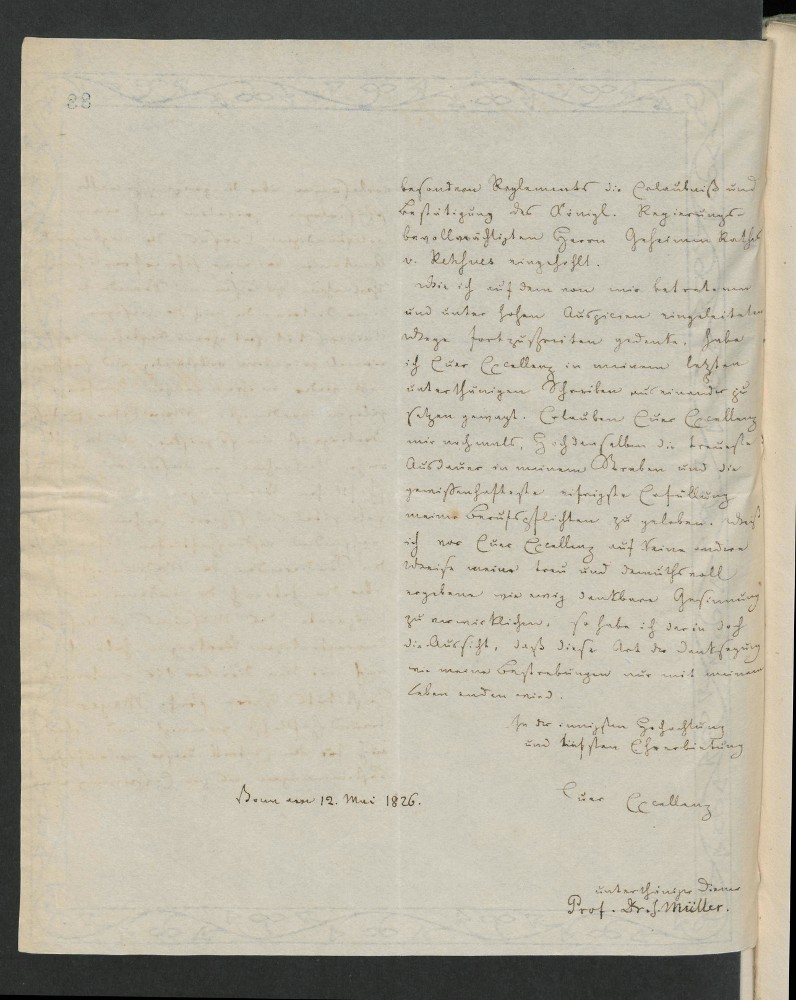 besondern Reglements die Erlaubniß und
Bestätigung des Königl. Regierungs-
bevollmächtigten Herrn Geheimen Raths
v. Rehfues eingehohlt.
Wie ich auf dem von mir betretenen
und unter hohen Auspicien eingeleiteten
Wege fortzuschreiten gedenke, habe
ich Euer Excellenz in meinem letzten
unterthänigen Schreiben auseinander zu
setzen gewagt. Erlauben Euer Excellenz
mir nochmals, Hochdenselben die treueste
Ausdauer in meinem Streben und die
gewissenhafteste eifrigste Erfüllung
meiner Berufspflichten zu geloben. Weiß
ich vor Euer Excellenz auf keine andere
Weise meine treu und demuthsvoll
ergebene wie ewig dankbare Gesinnung
zu verwirklichen, so habe ich darin doch
die Aussicht, daß diese Art der Danksagung
wie meine Bestrebungen nur mit meinem
Leben enden wird.
In der innigsten Hochachtung
und tiefsten Ehrerbietung
Euer Excellenz
Bonn am 12. Mai 1826.
unterthäniger Diener
Prof. Dr. J. Müller.